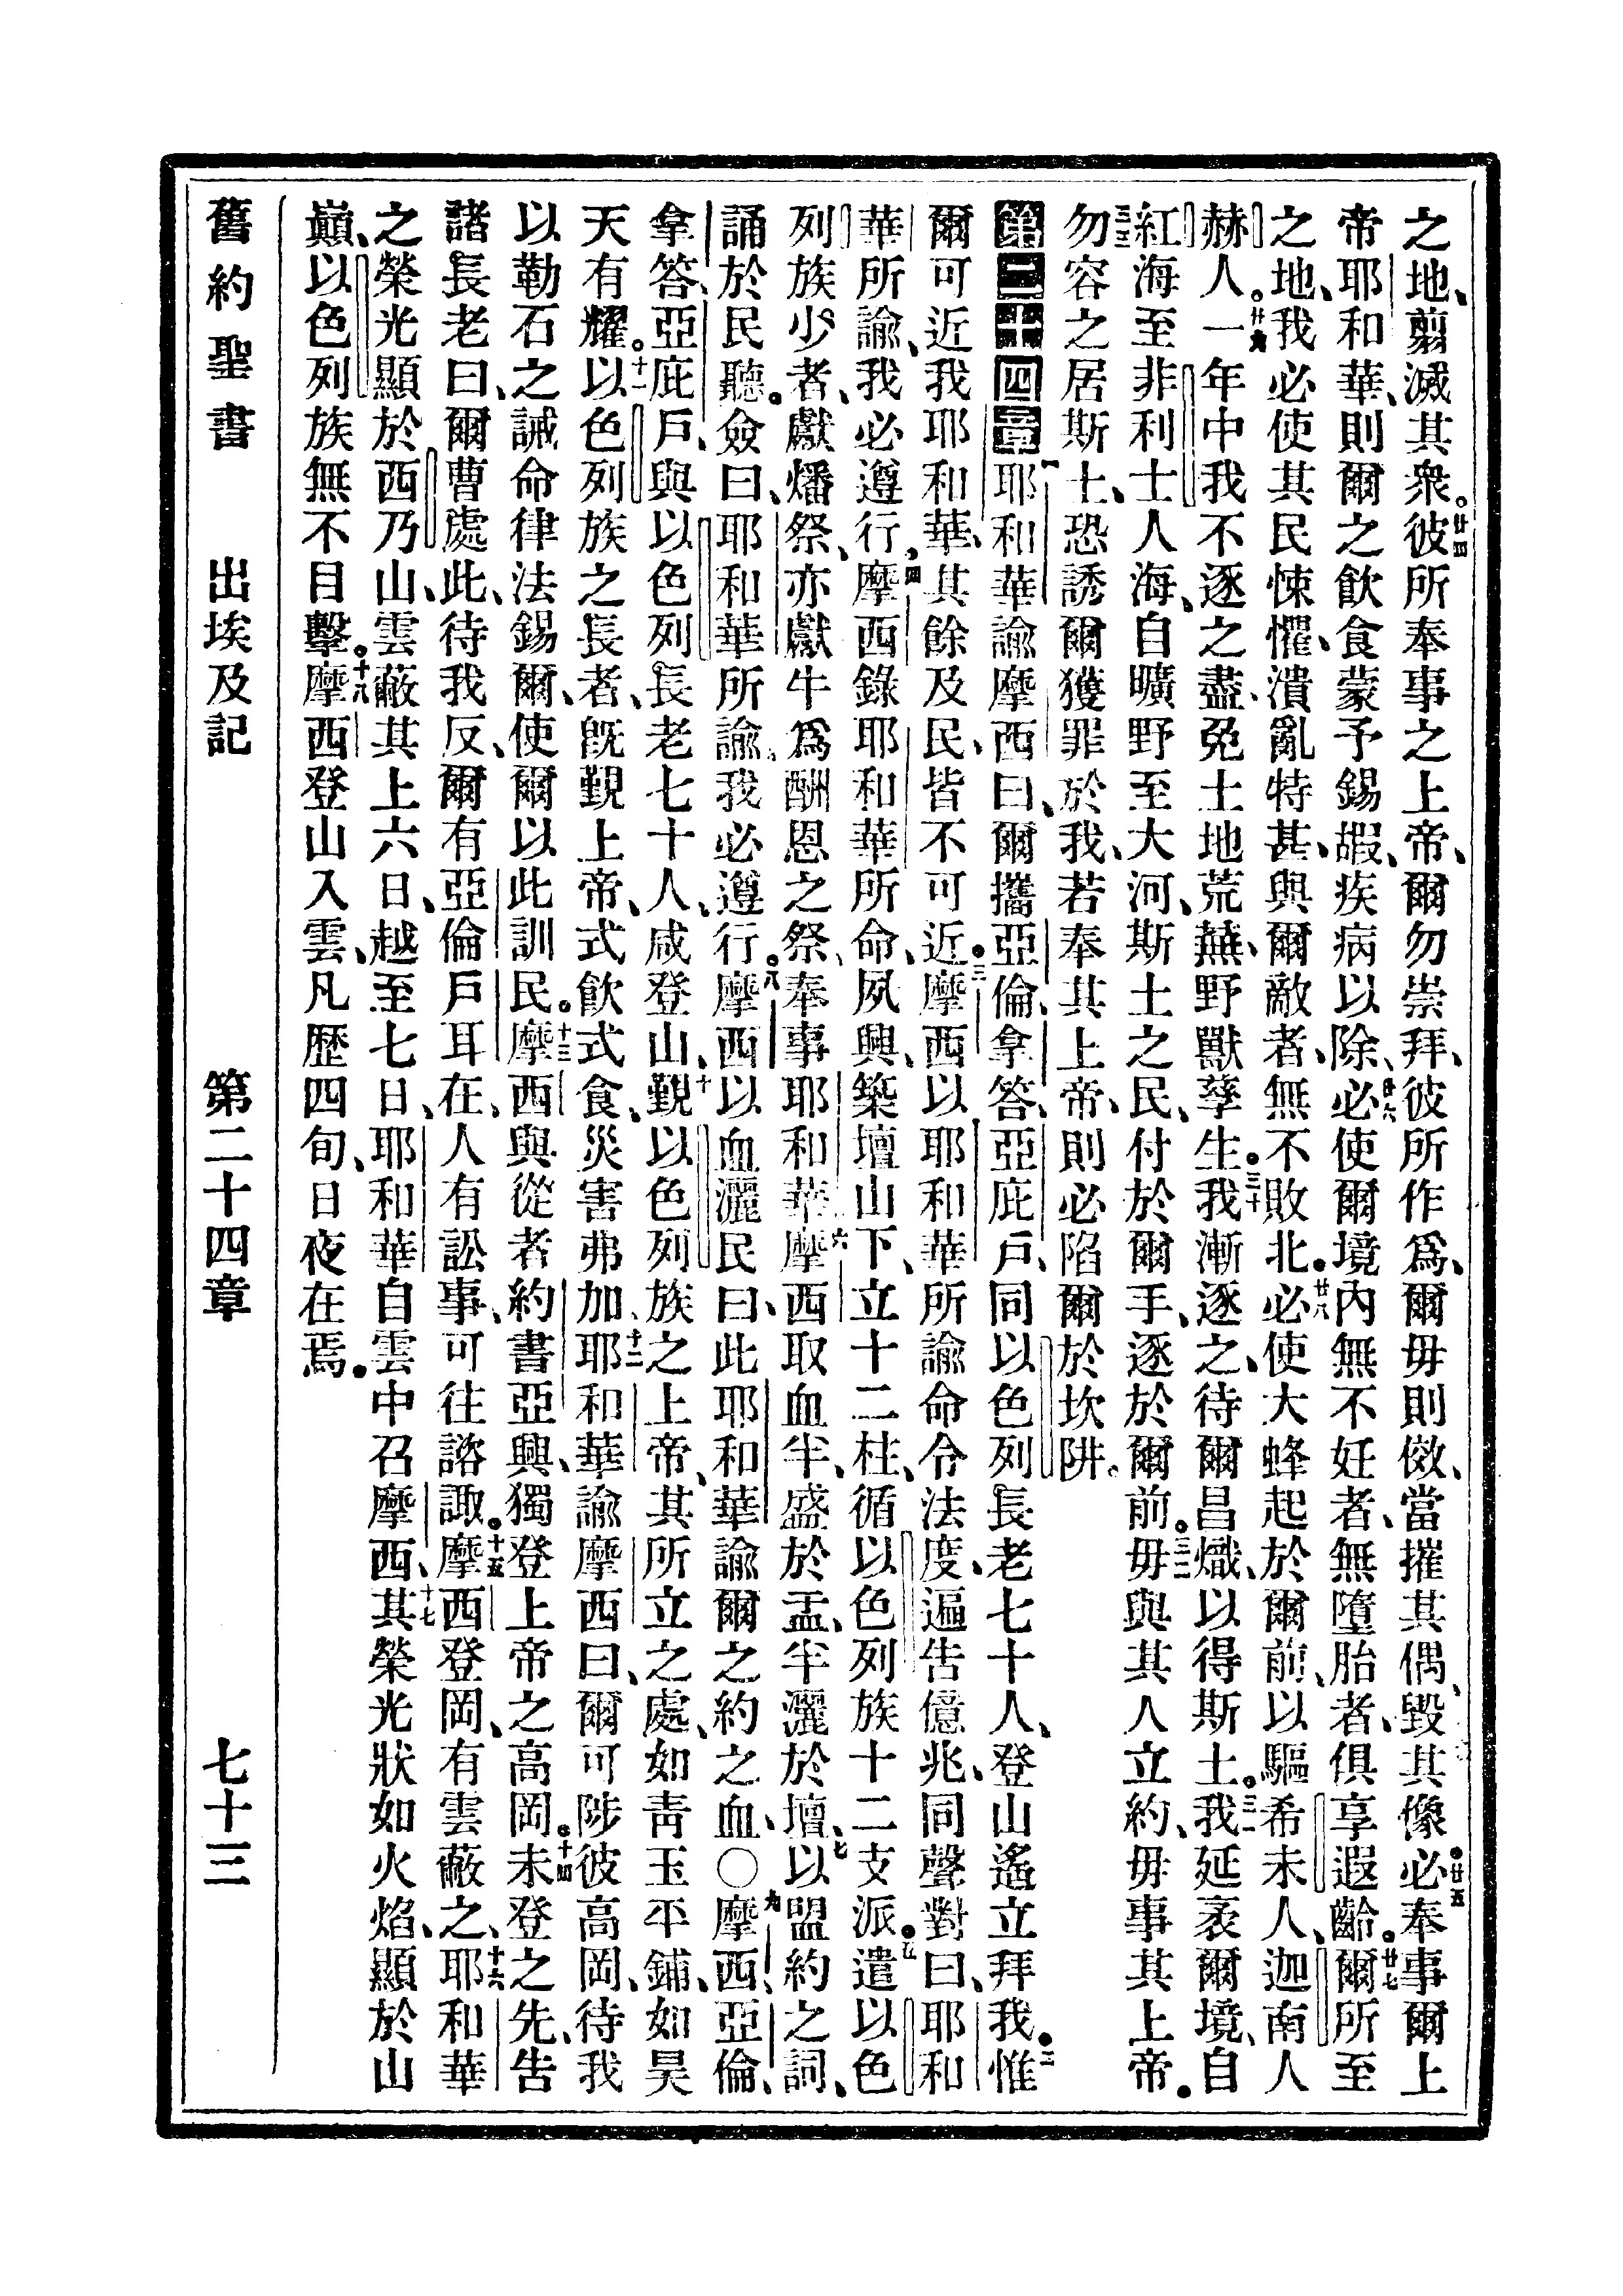 之地、翦滅其衆。廿四彼所奉事之上帝、爾勿崇拜、彼所作爲、爾毋則傚、當摧其偶、毀其像。廿五必奉事爾上
帝耶和華、則爾之飲食蒙予錫嘏、疾病以除、廿六必使爾境內無不妊者、無墮胎者、俱享遐齡。廿七爾所至
之地、我必使其民悚懼、潰亂特甚、與爾敵者、無不敗北。廿八必使大蜂起於爾前、以驅希未人、迦南人
赫人。廿九一年中我不逐之盡、免土地荒蕪、野獸孳生。三十我漸逐之、待爾昌熾、以得斯土。三一我延袤爾境、自
紅海至非利士人海、自曠野至大河、斯土之民、付於爾手、逐於爾前。三二毋與其人立約、毋事其上帝。
三三勿容之居斯土、恐誘爾獲罪於我、若奉其上帝、則必陷爾於坎阱。
第二十四章 一耶和華諭摩西曰、爾攜亞倫、拿答、亞庇戶、同以色列長老七十人、登山遙立拜我。二惟
爾可近我耶和華、其餘及民、皆不可近。三摩西以耶和華所諭命令法度、遍告億兆、同聲對曰、耶和
華所諭、我必遵行、四摩西錄耶和華所命、夙興、築壇山下、立十二柱、循以色列族十二支派。五遣以色
列族少者、獻燔祭、亦獻牛爲酬恩之祭、奉事耶和華、六摩西取血半、盛於盂、半灑於壇、七以盟約之詞、
誦於民聽。僉曰、耶和華所諭、我必遵行。八摩西以血灑民曰、此耶和華諭爾之約之血、〇九摩西、亞倫、
拿答、亞庇戶、與以色列長老七十人、咸登山、十覲以色列族之上帝、其所立之處、如青玉平鋪、如昊
天有耀。十一以色列族之長者、旣覲上帝、式飲式食、災害弗加、十二耶和華諭摩西曰、爾可陟彼高岡、待我
以勒石之誡命律法錫爾、使爾以此訓民。十三摩西與從者約書亞興、獨登上帝之高岡。十四未登之先、告
諸長老曰、爾曹處此、待我反、爾有亞倫戶耳在、人有訟事、可往諮諏。十五摩西登岡、有雲蔽之、十六耶和華
之榮光顯於西乃山、雲蔽其上六日、越至七日、耶和華自雲中召摩西、十七其榮光狀如火焰、顯於山
巔、以色列族無不目擊。十八摩西登山入雲、凡歷四旬、日夜在焉。
舊約聖書 出埃及記 第二十四章 七十三